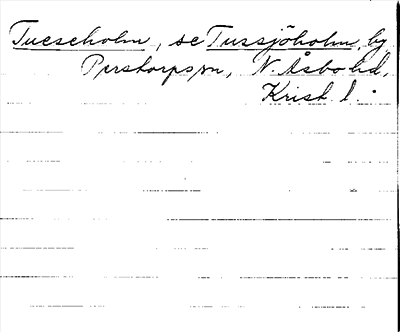 Tueseholm, se Tussjöholm, by
Perstorps sn, N. Åsbo hd,
Krist. l.